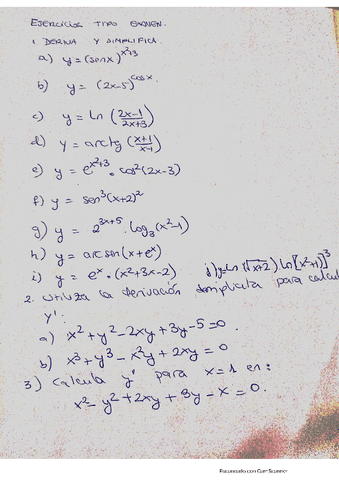 EJERCICIOS TIPO EXAMEN.
1. DERIVA Y SIMPLIFICA.
a) y = (senx)^{x²+3}
b) y = (2x-5)^{cosx}
c) y = ln (\frac{2x-1}{2x+3})
d) y = arctg (\frac{x+1}{x-1})
e) y = e^{x²+3} · cos²(2x-3)
f) y = sen³(x+2)²
g) y = 2^{3x+5} · log₃(x²-1)
h) y = arcsen(x+e^x)
i) y = e^x · (x²+3x-2) j) y = ln (√x+2) ln[x²+1]³
2. Utiliza la derivación implícita para calcul
y':
a) x²+y²-2xy+3y-5=0.
b) x³+y³-x²y+2xy=0
3) Calcula y' para x=1 en:
x²-y²+2xy+3y-x=0.
Escaneado con CamScanner